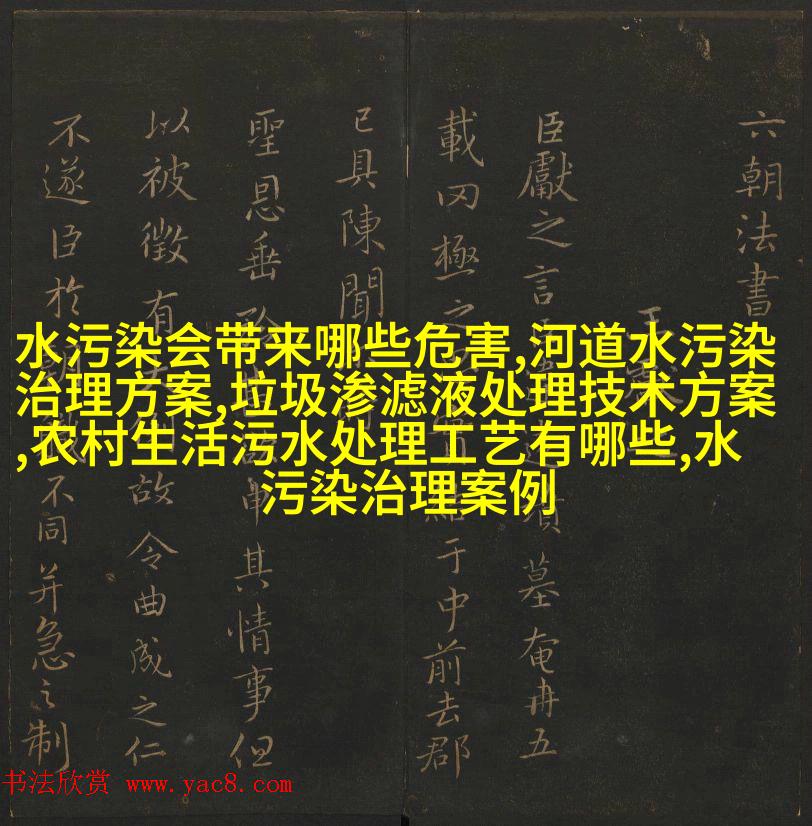 六朝法書
臣獻之言
墓奄冉五
載罔極之
于中前去郡
已具陳聞
聖恩垂
其情事但
以被徵有
故令曲成之仁
不遂臣於
不同并急之制
水污染会带来哪些危害,河道水污染
治理方案,垃圾渗滤液处理技术方案
,农村生活污水处理工艺有哪些,水
污染治理案例
书法欣赏 www.yac8.com